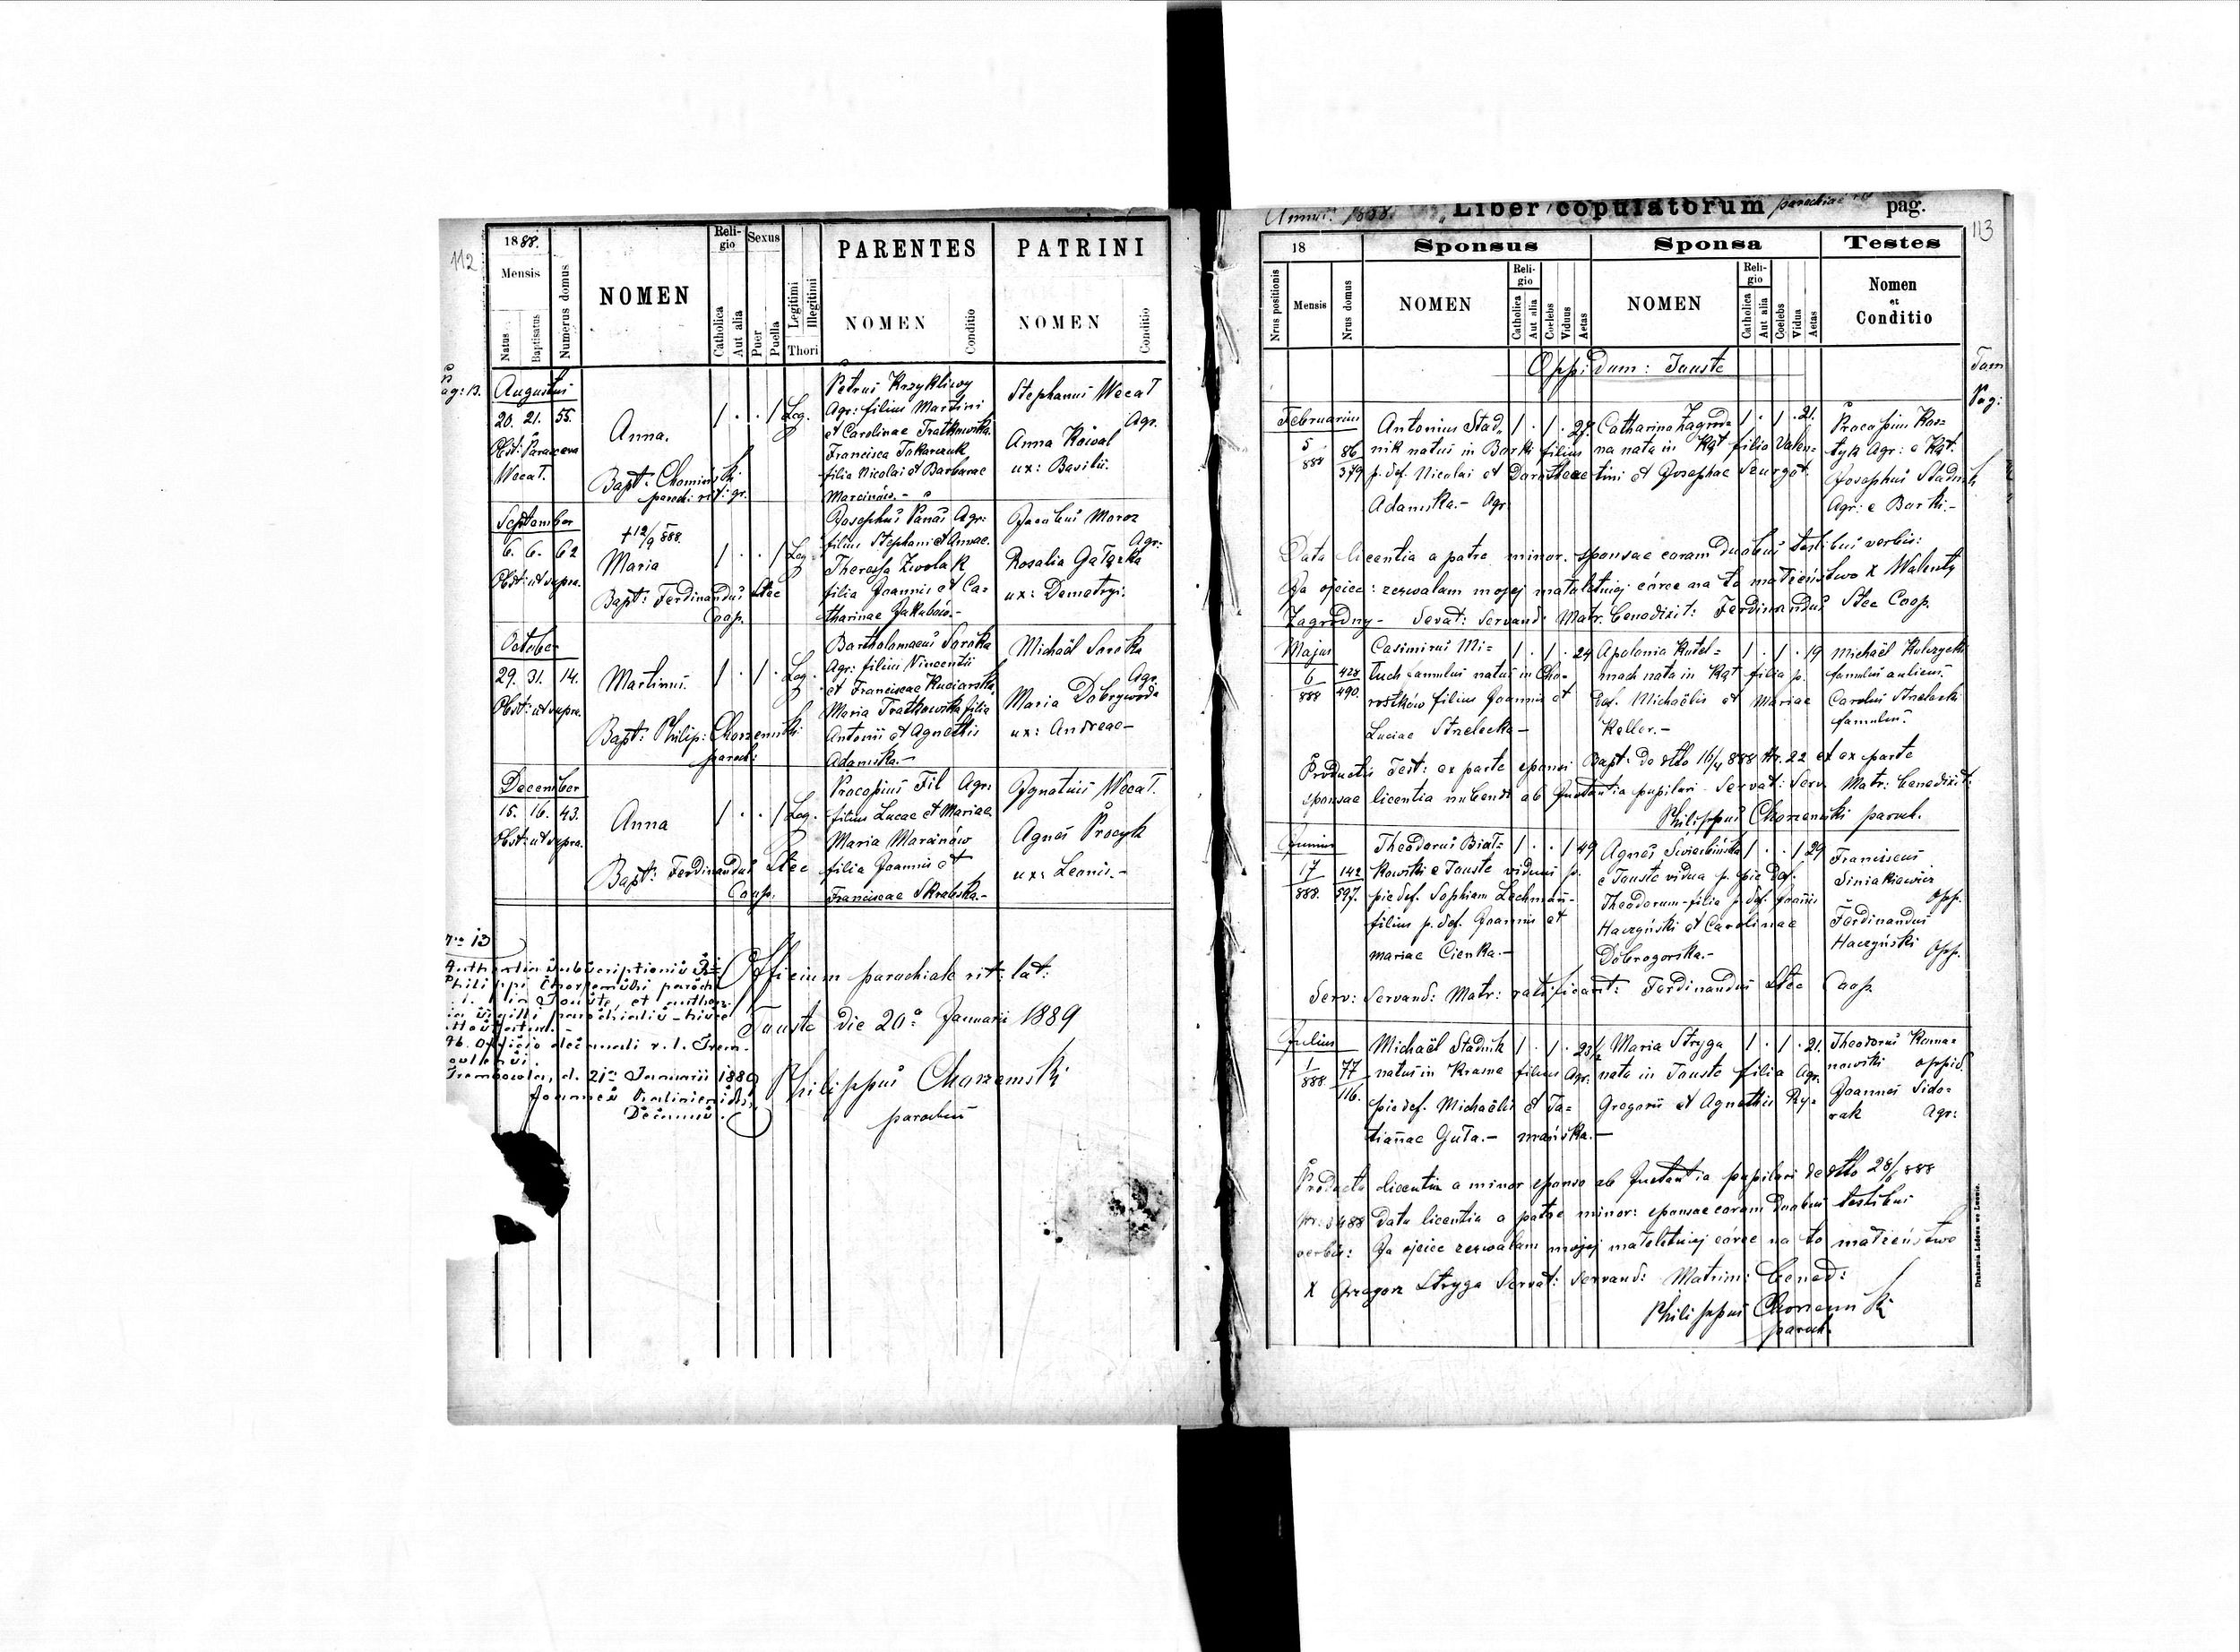 112
1888.
Mensis
Natus
Baptisatus
Numerus domus
NOMEN
Reli-
gio
Catholica
Aut alia
Sexus
Puer
Puella
Legitimi
Illegitimi
Thori
PARENTES
NOMEN
Conditio
PATRINI
NOMEN
Conditio
Augustus
20. 21. 55.
Obst: Paraceva
Wecał.
Anna.
Bapt: Chomiński
paroch: rit: gr.
1 . . 1 Leg.
Petrus Krzykliwy
Agr: filius Martini
et Carolinae Tratkowska.
Francisca Tokarczuk
filia Nicolai et Barbarae
Marcinów. -
Stephanus Wecał
Agr.
Anna Kowal
ux: Basilii.
September
6. 6. 62
Obst: ut supra.
+12/9 888.
Maria
Bapt: Ferdinandus Stec
Coop.
1 . . 1 Leg.
Josephus Panas Agr:
filius Stephani et Annae.
Theressa Zwolak
filia Joannis et Ca-
tharinae Jakubów.-
Jacobus Moroz
Agr:
Rosalia Gałązka
ux: Demetryi.
October
29. 31. 14.
Obst: ut supra.
Martinus.
Bapt: Philip: Chorzemski
paroch:
1 . 1 . Leg.
Bartholomaeus Soroka
Agr: filius Vincentii
et Franciscae Kuciarska,
Maria Tratkowska filia
Antonii et Agnethis
Adamska.-
Michaël Soroka
Agr.
Maria Dobrywoda
ux: Andreae-
December
15. 16. 43.
Obst: ut supra.
Anna
Bapt: Ferdinandus Stec
Coop.
1 . . 1 Leg.
Procopius Fil Agr:
filius Lucae et Mariae
Maria Marcinów
filia Joannis et
Franciscae Skrabska.-
Ignatius Wecał.
Agnes Procyk
ux: Leonis.-
Nro 13
Philippi Chorzemski parochi
Officium parochiale rit: lat:
Touste die 20a Januarii 1889
Philippus Chorzemski
parochus
d. 21a Januarii 1889
Decanus.
Anno: 1888. Liber copulatorum parochiae pag.
113
18
Nrus positionis
Mensis
Nrus domus
Sponsus
NOMEN
Reli-
gio
Catholica
Aut alia
Coelebs
Viduus
Aetas
Sponsa
NOMEN
Reli-
gio
Catholica
Aut alia
Coelebs
Vidua
Aetas
Testes
Nomen
et
Conditio
Oppidum: Touste
Februarius
5
888
86
379
Antonius Stad-
nik natus in Borki filius
p. def. Nicolai et Dorotheae
Adamska.- Agr
1 . 1 . 27.
Catharina Zagrod-
na nata in Kąt filia Valen-
tini et Josephae Szurgot.
1 . 1 . 21.
Procopius Kos-
tyk Agr: e Kąt.
Josephus Stadnik
Agr: e Borki.-
Data licentia a patre minor. sponsae coram duobus testibus verbis:
Ja ojciec: zezwalam mojej małoletniej córce na to małżeństwo X Walenty
Zagrodny- Servat: Servand: Matr. benedixit: Ferdinandus Stec Coop.
Majus
6
888
428
490.
Casimirus Mi-
tuch famulus natus in Cho-
rostków filius Joannis et
Luciae Strzelecka-
1 . 1 . 24
Apolonia Kutel-
mach nata in Kąt filia p.
def. Michaëlis et Mariae
Keller.-
1 . 1 . 19
Michaël Kulczycki
famulus aulicus.
Carolus Strzelecki
famulus.
Productis Test: ex parte sponsi Bapt: de dtto 16/4 888 Nr. 22 et ex parte
sponsae licentia nubendi ab Instantia pupilari - Servat: Serv. Matr: benedixit:
Philippus Chorzemski paroch.
Junius
17
888.
142
597.
Theodorus Biał-
kowski e Touste viduus p.
pie def. Sophiam Lachman-
filius p. def. Joannis et
Mariae Cienka.-
1 . . 1 49
Agnes Świerbińska
e Touste vidua p. pie def.
Theodorum-filia p. def. Joannis
Haczyński et Carolinae
Dobrogorska.-
1 . . 1 29
Franciscus
Siniakiewicz
Opp.
Ferdinandus
Haczyński Opp.
Serv: Servand: Matr: ratificavit: Ferdinandus Stec Coop.
Julius
1
888
77
116.
Michaël Stadnik
natus in Krasne filius Agr:
pie def. Michaëlis et Ta-
tiannae Guła.-
1 . 1 . 23½
Maria Stryga
nata in Touste filia Agr:
Gregorii et Agnethis Ry-
mańska.-
1 . 1 . 21.
Theodorus Roma-
nowski oppid.
Joannes Sido-
rak Agr:
Producta licentia a minor sponso ab Instantia pupilari de dtto 28/6 888
Nr: 3488 Data licentia a patre minor: sponsae coram duobus testibus
verbis: Ja ojciec zezwalam mojej małoletniej córce na to małżeństwo
X Grzegorz Stryga Servat: Servand: Matrim: bened:
Philippus Chorzemski
paroch.
Drukarnia Ludowa we Lwowie.